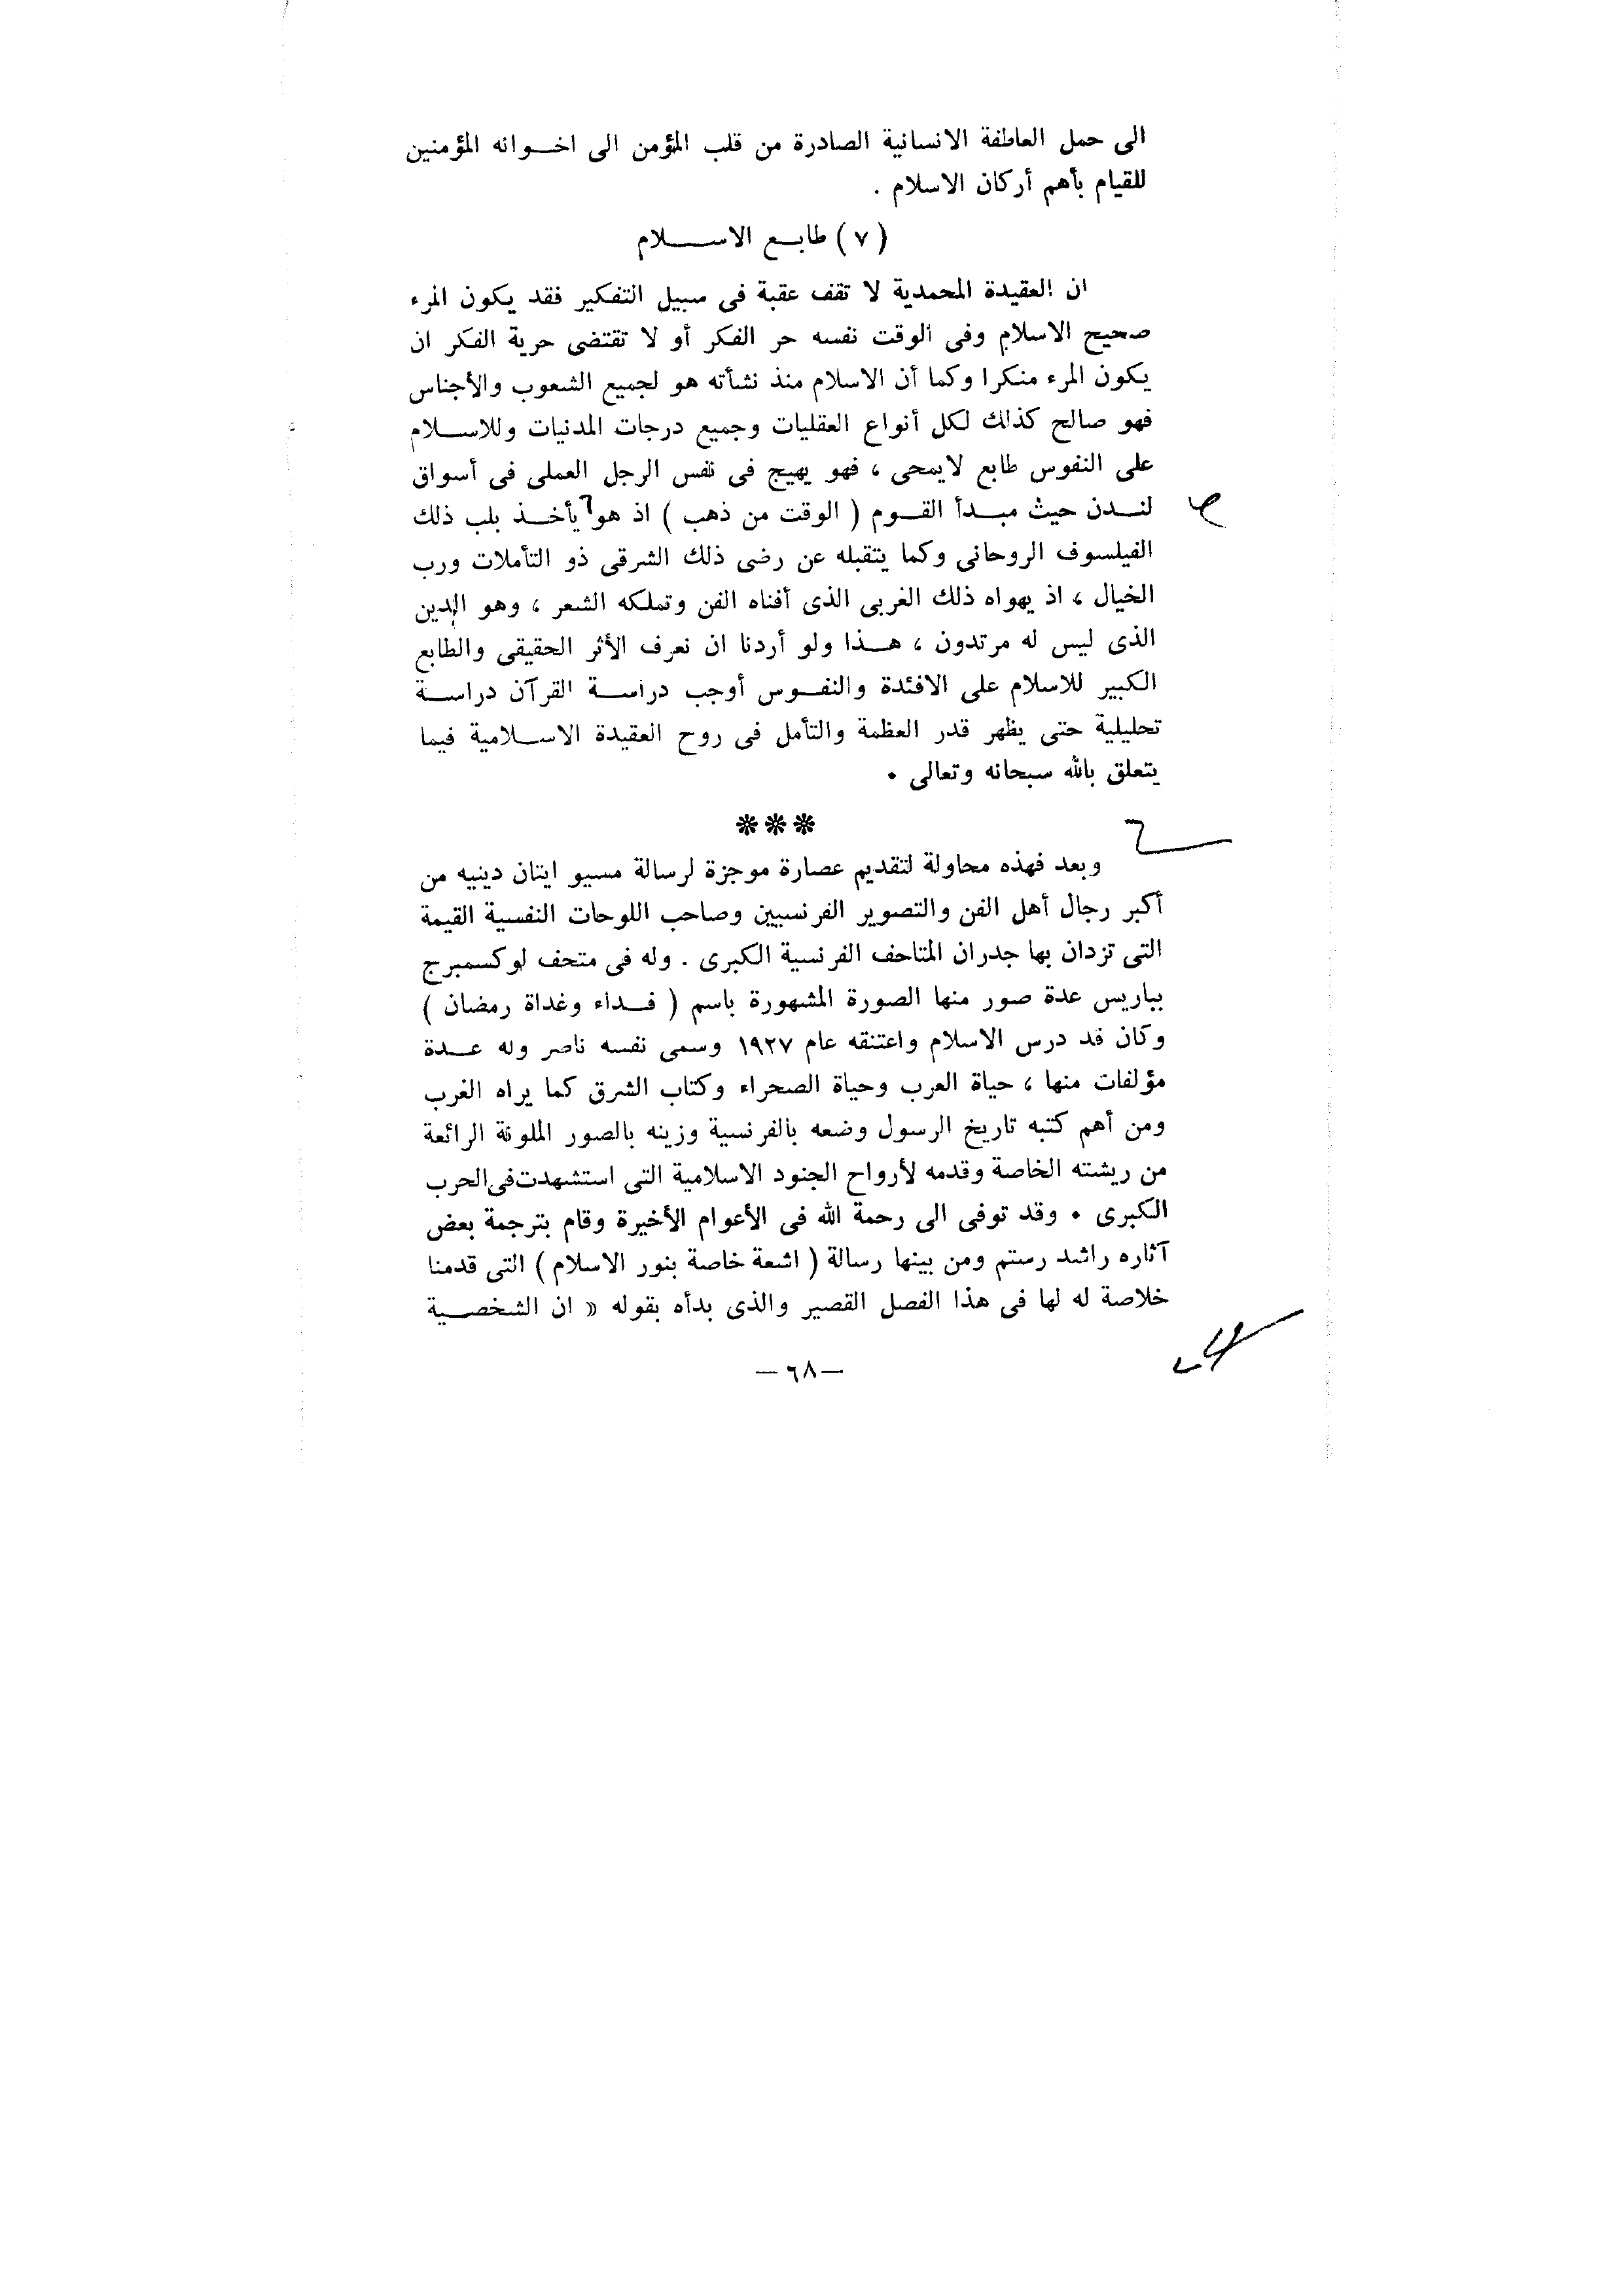 الى حمل العاطفة الانسانية الصادرة من قلب المؤمن الى اخــوانه المؤمنين
للقيام بأهم أركان الاسلام .
( ٧ ) طابـع الاســـلام
ان العقيدة المحمدية لا تقف عقبة فى سبيل التفكير فقد يكون المرء
صحيح الاسلام وفى الوقت نفسه حر الفكر أو لا تقتضى حرية الفكر ان
يكون المرء منكرا وكما أن الاسلام منذ نشأته هو لجميع الشعوب والأجناس
فهو صالح كذلك لكل أنواع العقليات وجميع درجات المدنيات وللاســلام
على النفوس طابع لايمحى ، فهو يهيج فى نفس الرجل العملى فى أسواق
لنــدن حيث مبــدأ القــوم ( الوقت من ذهب ) اذ هو يأخــذ بلب ذلك
الفيلسوف الروحانى وكما يتقبله عن رضى ذلك الشرقى ذو التأملات ورب
الخيال ، اذ يهواه ذلك الغربى الذى أفناه الفن وتملكه الشعر ، وهو الدين
الذى ليس له مرتدون ، هــذا ولو أردنا ان نعرف الأثر الحقيقى والطابع
الكبير للاسلام على الافئدة والنفــوس أوجب دراســة القرآن دراســة
تحليلية حتى يظهر قدر العظمة والتأمل فى روح العقيدة الاســلامية فيما
يتعلق بالله سبحانه وتعالى .
***
وبعد فهذه محاولة لتقديم عصارة موجزة لرسالة مسيو ايتان دينيه من
أكبر رجال أهل الفن والتصوير الفرنسيين وصاحب اللوحات النفسية القيمة
التى تزدان بها جدران المتاحف الفرنسية الكبرى . وله فى متحف لوكسمبرج
بباريس عدة صور منها الصورة المشهورة باسم ( فــداء وغداة رمضان )
وكان قد درس الاسلام واعتنقه عام ١٩٢٧ وسمى نفسه ناصر وله عــدة
مؤلفات منها ، حياة العرب وحياة الصحراء وكتاب الشرق كما يراه الغرب
ومن أهم كتبه تاريخ الرسول وضعه بالفرنسية وزينه بالصور الملونة الرائعة
من ريشته الخاصة وقدمه لأرواح الجنود الاسلامية التى استشهدت فى الحرب
الكبرى . وقد توفى الى رحمة الله فى الأعوام الأخيرة وقام بترجمة بعض
آثاره راشد رستم ومن بينها رسالة ( اشعة خاصة بنور الاسلام ) التى قدمنا
خلاصة له لها فى هذا الفصل القصير والذى بدأه بقوله « ان الشخصــية
— ٦٨ —